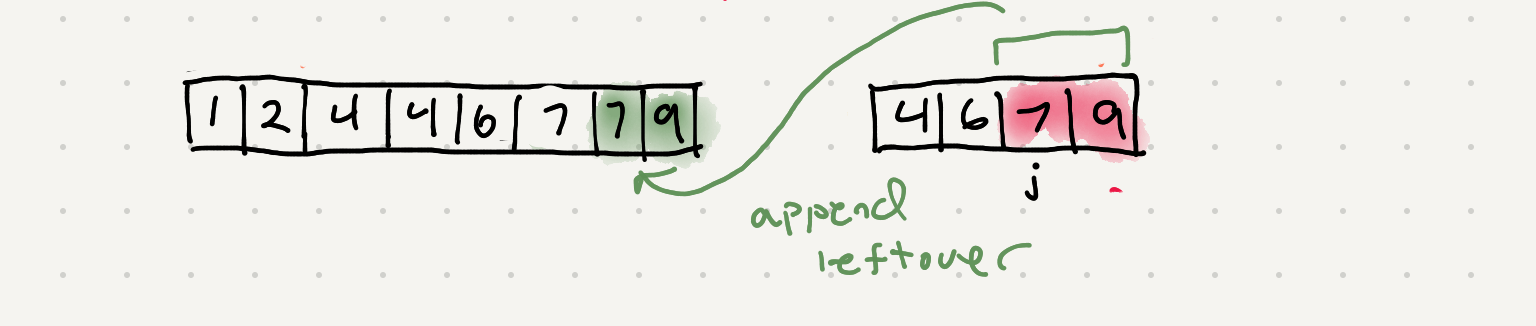 1 2 4 4 6 7 7 9
4 6 7 9
j
append
leftover